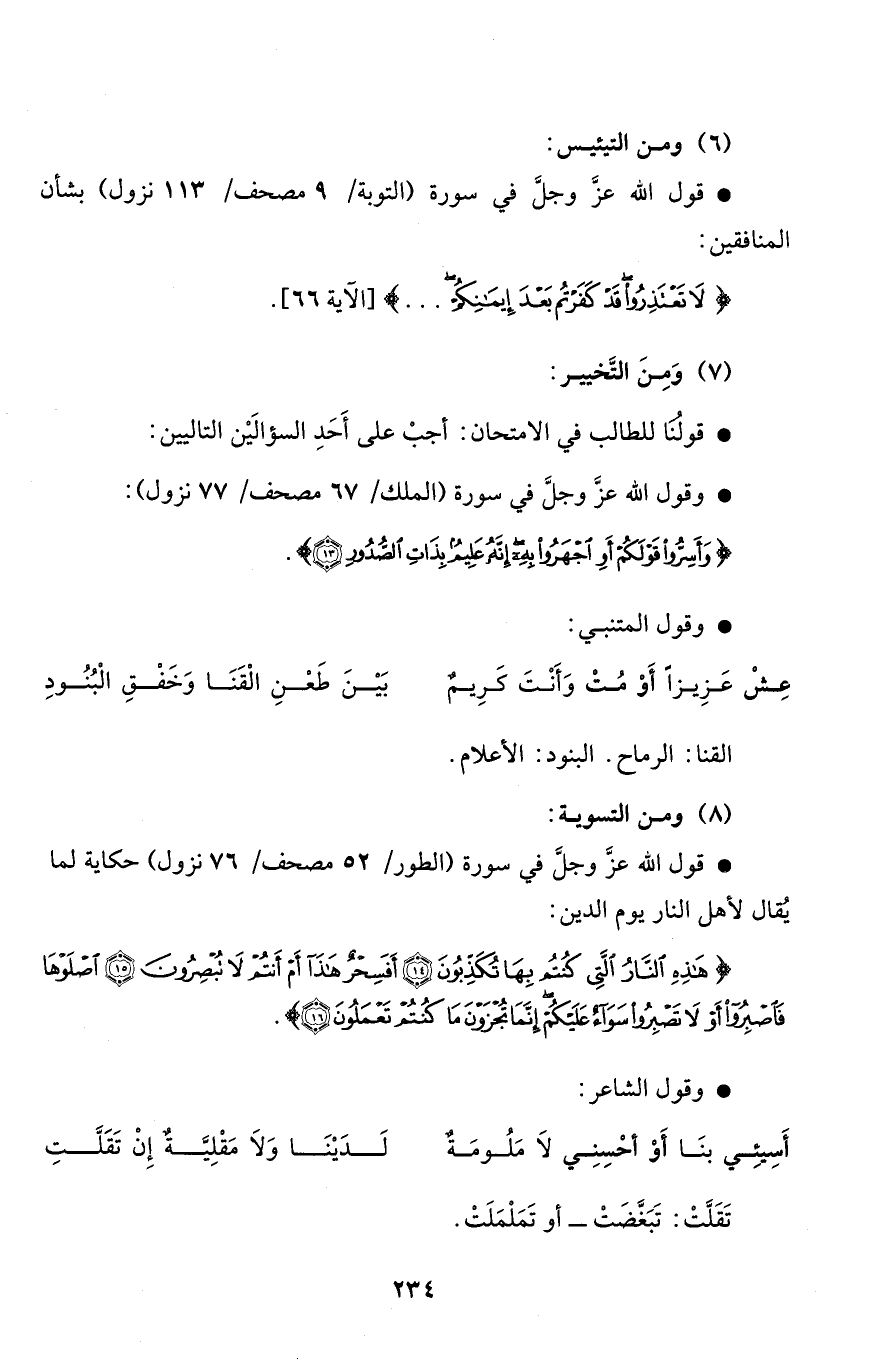 (٦) ومن التيئيس:
● قول الله عزَّ وجلَّ في سورة (التوبة/ ٩ مصحف/ ١١٣ نزول) بشأن
المنافقين:
﴿ لَا تَعْتَذِرُوا۟ ۖ قَدْ كَفَرْتُم بَعْدَ إِيمَـٰنِكُمْ ۖ . . . ﴾ [الآية ٦٦].
(٧) وَمِنَ التَّخيير:
● قولُنَا للطالب في الامتحان: أجبْ على أَحَدِ السؤالَيْن التاليين:
● وقول الله عزَّ وجلَّ في سورة (الملك/ ٦٧ مصحف/ ٧٧ نزول):
﴿ وَأَسِرُّوا۟ قَوْلَكُمْ أَوِ ٱجْهَرُوا۟ بِهِۦٓ ۖ إِنَّهُۥ عَلِيمٌۢ بِذَاتِ ٱلصُّدُورِ ١٣ ﴾.
● وقول المتنبـي:
عِشْ عَزِيزاً أَوْ مُتْ وَأَنْتَ كَرِيمٌ بَيْنَ طَعْنِ الْقَنَا وَخَفْقِ الْبُنُودِ
القنا: الرماح. البنود: الأعلام.
(٨) ومن التسوية:
● قول الله عزَّ وجلَّ في سورة (الطور/ ٥٢ مصحف/ ٧٦ نزول) حكاية لما
يُقال لأهل النار يوم الدين:
﴿ هَـٰذِهِ ٱلنَّارُ ٱلَّتِى كُنتُم بِهَا تُكَذِّبُونَ ١٤ أَفَسِحْرٌ هَـٰذَآ أَمْ أَنتُمْ لَا تُبْصِرُونَ ١٥ ٱصْلَوْهَا
فَٱصْبِرُوٓا۟ أَوْ لَا تَصْبِرُوا۟ سَوَآءٌ عَلَيْكُمْ ۖ إِنَّمَا تُجْزَوْنَ مَا كُنتُمْ تَعْمَلُونَ ١٦ ﴾.
● وقول الشاعر:
أَسِيئِي بنَا أَوْ أحْسِنِي لَا مَلُومَةٌ لَدَيْنَا وَلَا مَقْلِيَّةٌ إِنْ تَقَلَّتِ
تَقَلَّتْ: تَبَغَّضَتْ ـ أو تَمَلْمَلَتْ.
٢٣٤